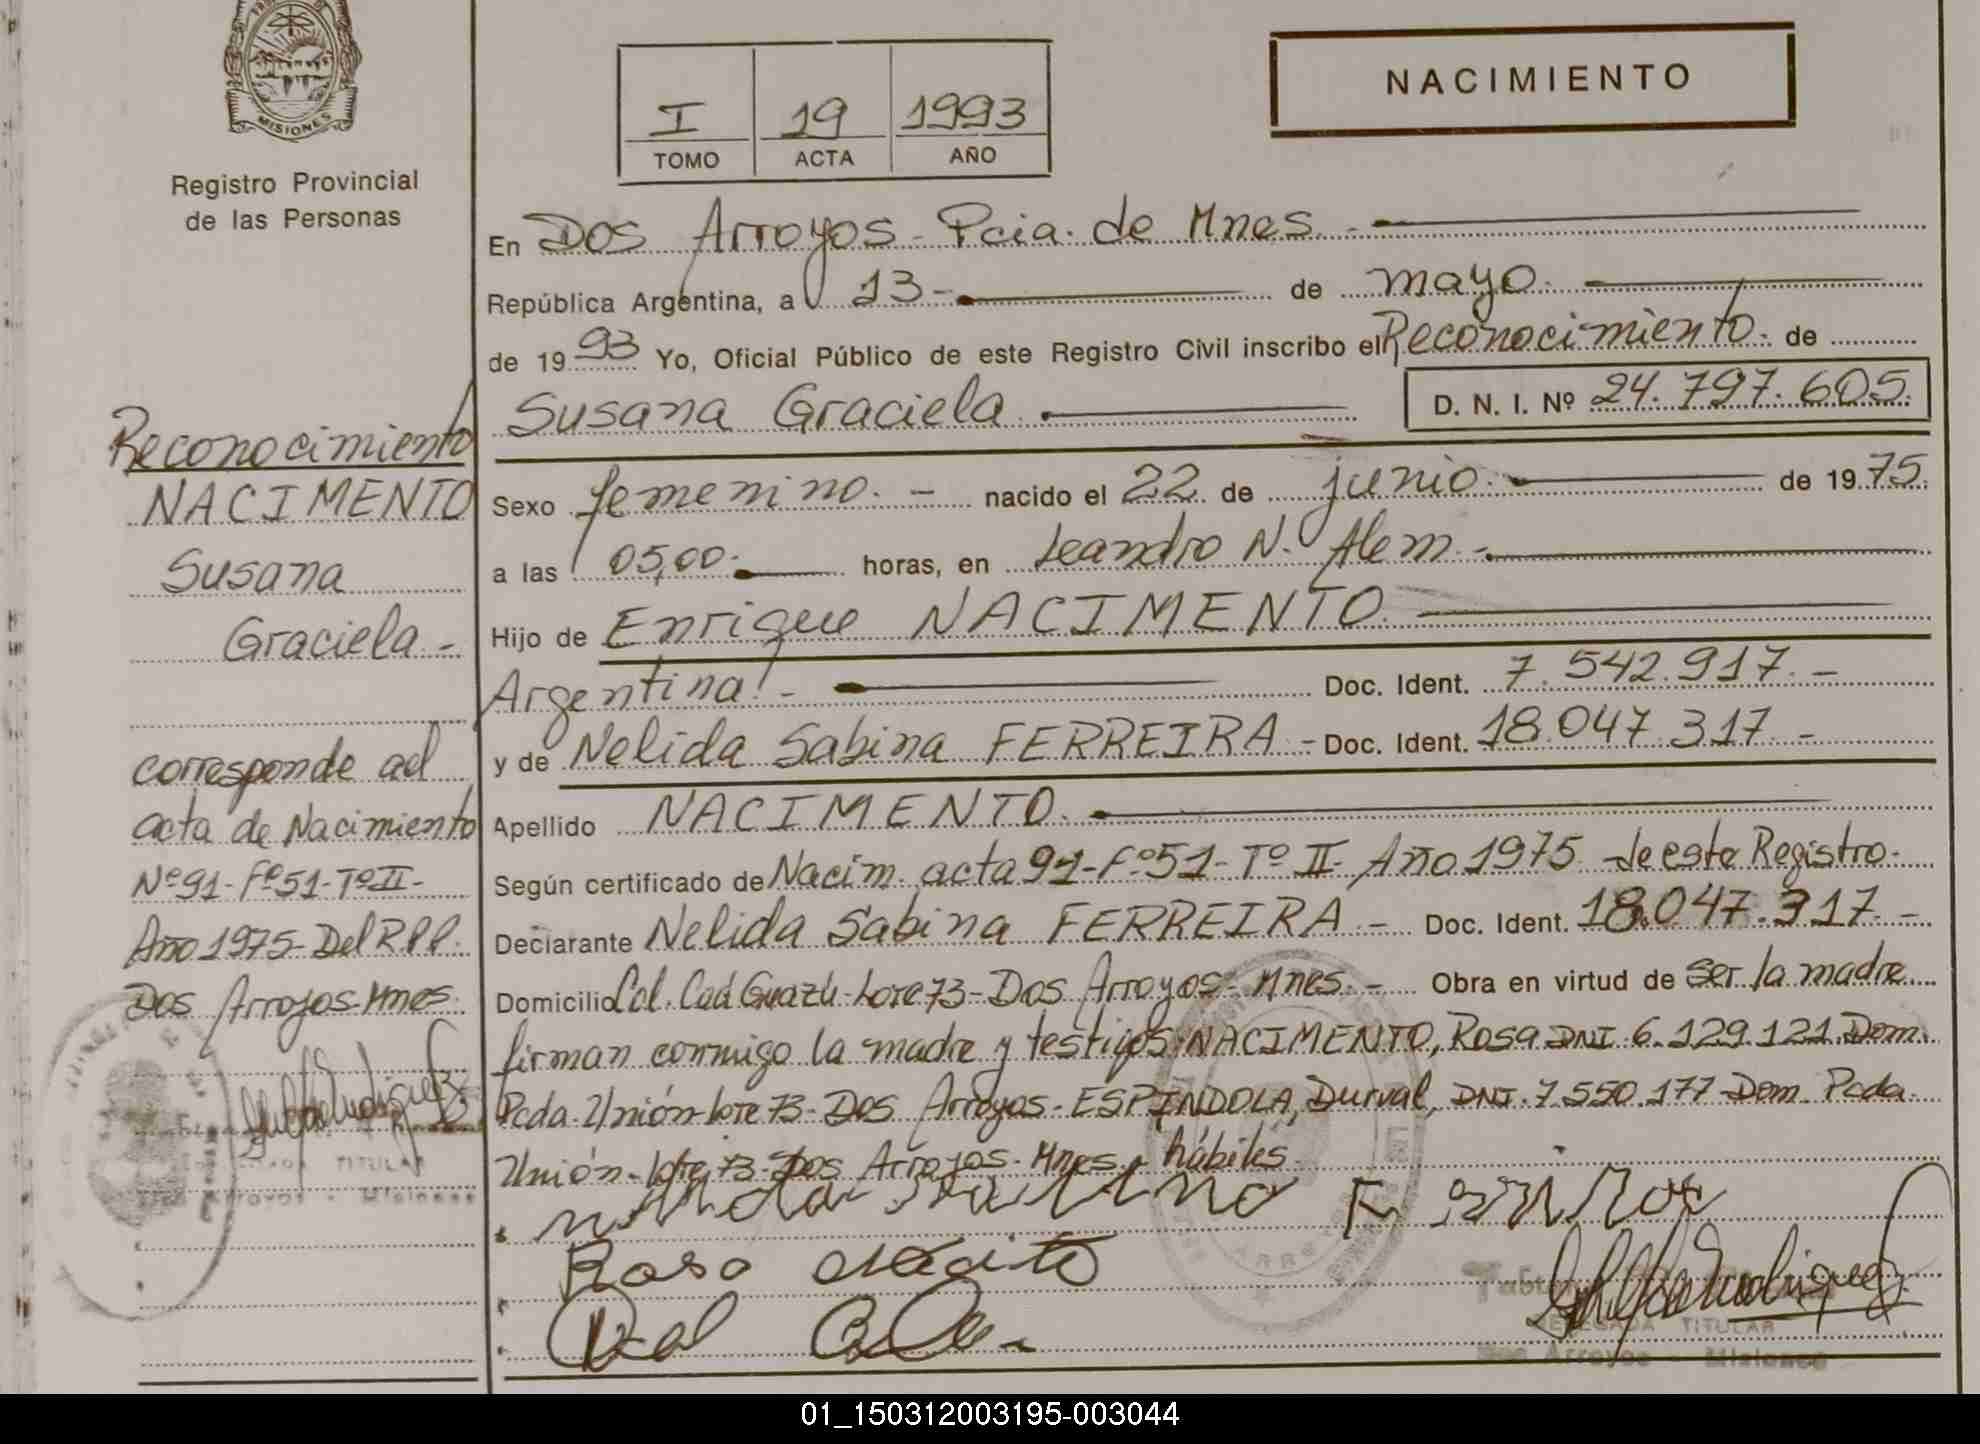 MISIONES
Registro Provincial
de las Personas
I 19 1993
TOMO ACTA AÑO
NACIMIENTO
En Dos Arroyos - Pcia. de Mnes. -
República Argentina, a 13 - de mayo.
de 1993 Yo, Oficial Público de este Registro Civil inscribo el Reconocimiento. de
Susana Graciela. D. N. I. Nº 24.797.605.
Sexo femenino. - nacido el 22 de junio. de 1975.
a las 05,00. horas, en Leandro N. Alem. -
Hijo de Enrique NACIMENTO.
Argentina. - Doc. Ident. 7.542.917. -
y de Nelida Sabina FERREIRA - Doc. Ident. 18.047.317 -
Apellido NACIMENTO.
Según certificado de Nacim. acta 91 - Fº 51 - Tº II - Año 1975 de este Registro.
Declarante Nelida Sabina FERREIRA - Doc. Ident. 18.047.317 -
Domicilio Col. Guazú - Lote 73 - Dos Arroyos - Mnes. - Obra en virtud de Ser la madre
firman conmigo la madre y testigos: NACIMENTO, Rosa DNI 6.129.121. Dom.
Pcda. Unión - lote 73 - Dos Arroyos - ESPINDOLA, Durval, DNI. 7.550.177 Dom. Pcda.
Unión - lote 73 - Dos Arroyos - Mnes. hábiles.
Rosa
DELEGADA TITULAR
Dos Arroyos - Misiones
Reconocimiento
NACIMENTO
Susana
Graciela -
corresponde al
acta de Nacimiento
Nº 91 - Fº 51 - Tº II -
Año 1975 - Del R.P.P.
Dos Arroyos - Mnes.
TITULAR
Arroyos - Misiones
01_150312003195-003044